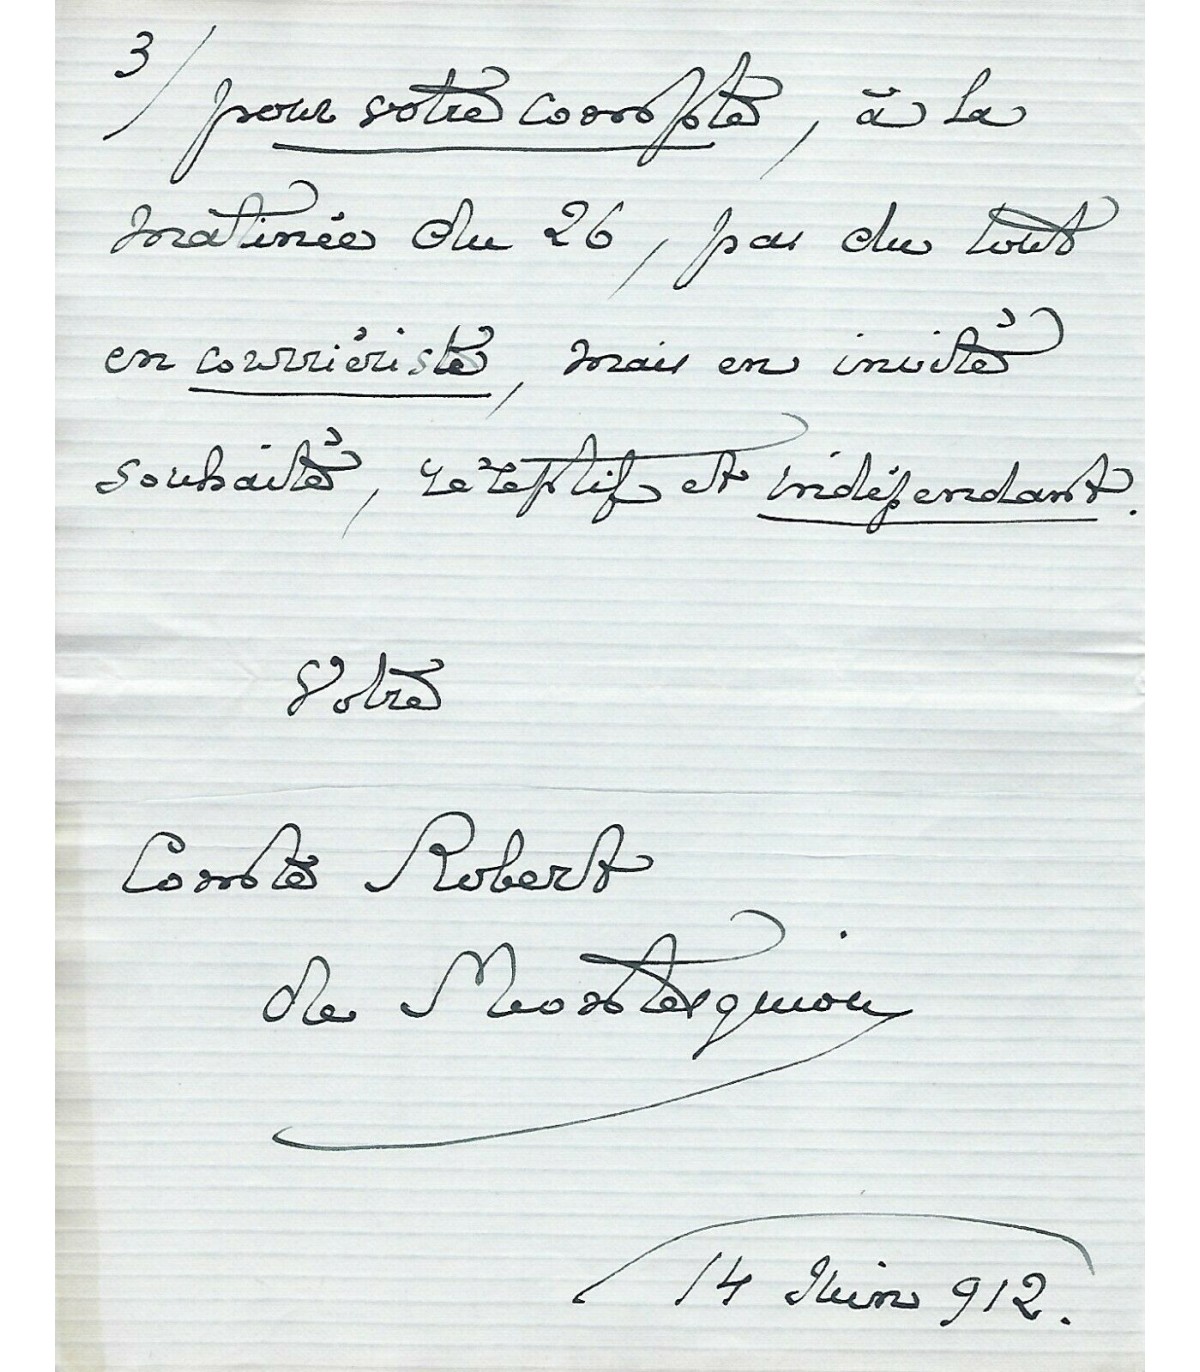 3/
pour votre compte, à la
matinée du 26, pas du tout
en courriériste, mais en invité
souhaité, réceptif et indépendant.
Votre
Comte Robert
de Montesquiou
14 Juin 912.